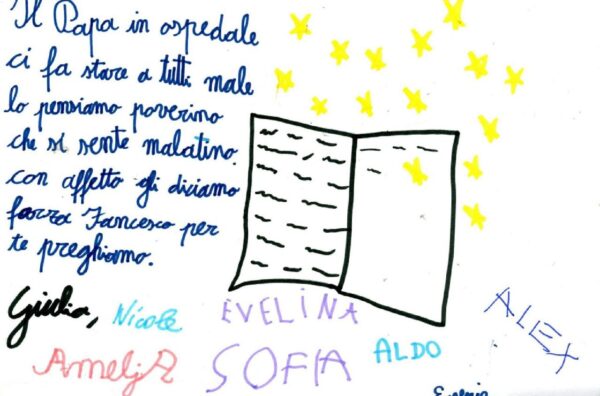 Il Papa in ospedale
ci fa stare a tutti male
lo pensiamo poverino
che si sente malatino.
con affetto gli diciamo
forza Francesco per
te preghiamo.
Giulia, Nicole EVELINA
AmeljA SOFIA ALDO ALEX